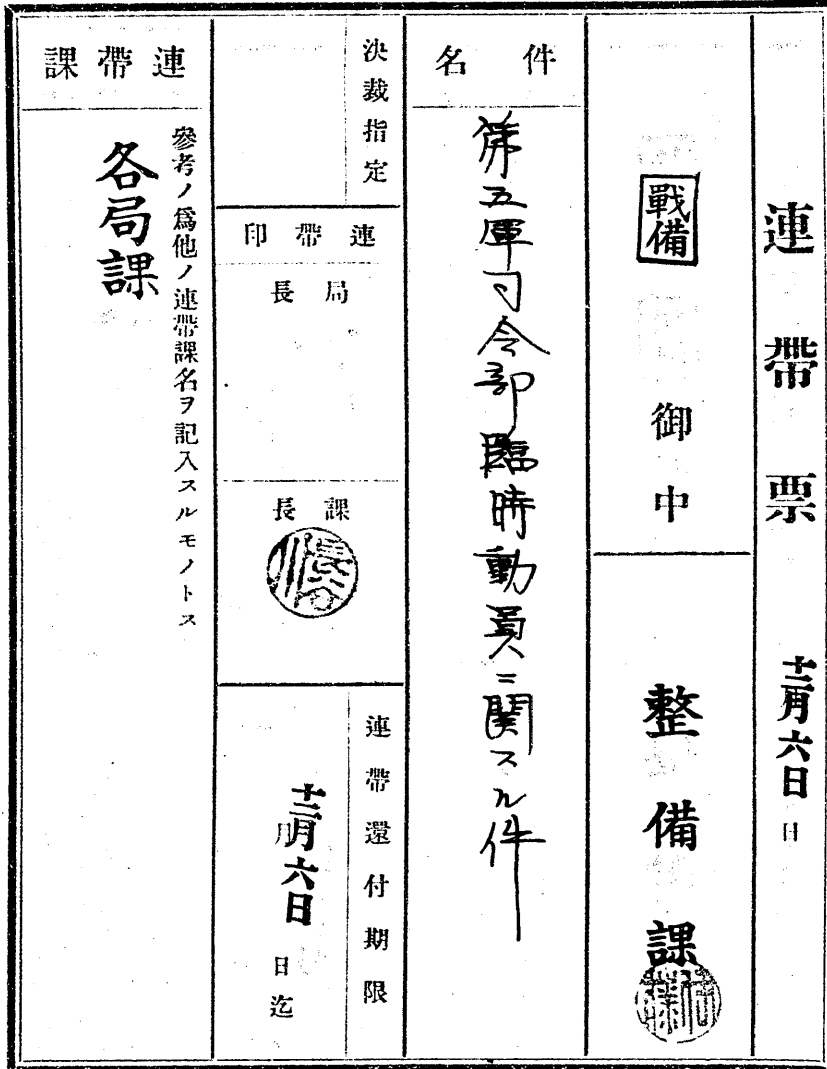 連帶票 十二月六日 日
戰備 御中
整備課
件名
第五軍司令部臨時動員ニ関スル件
決裁指定
連帶印
局長
課長
長谷川
連帶還付期限
十二月六日 月 日迄
連帶課
參考ノ爲他ノ連帶課名ヲ記入スルモノトス
各局課